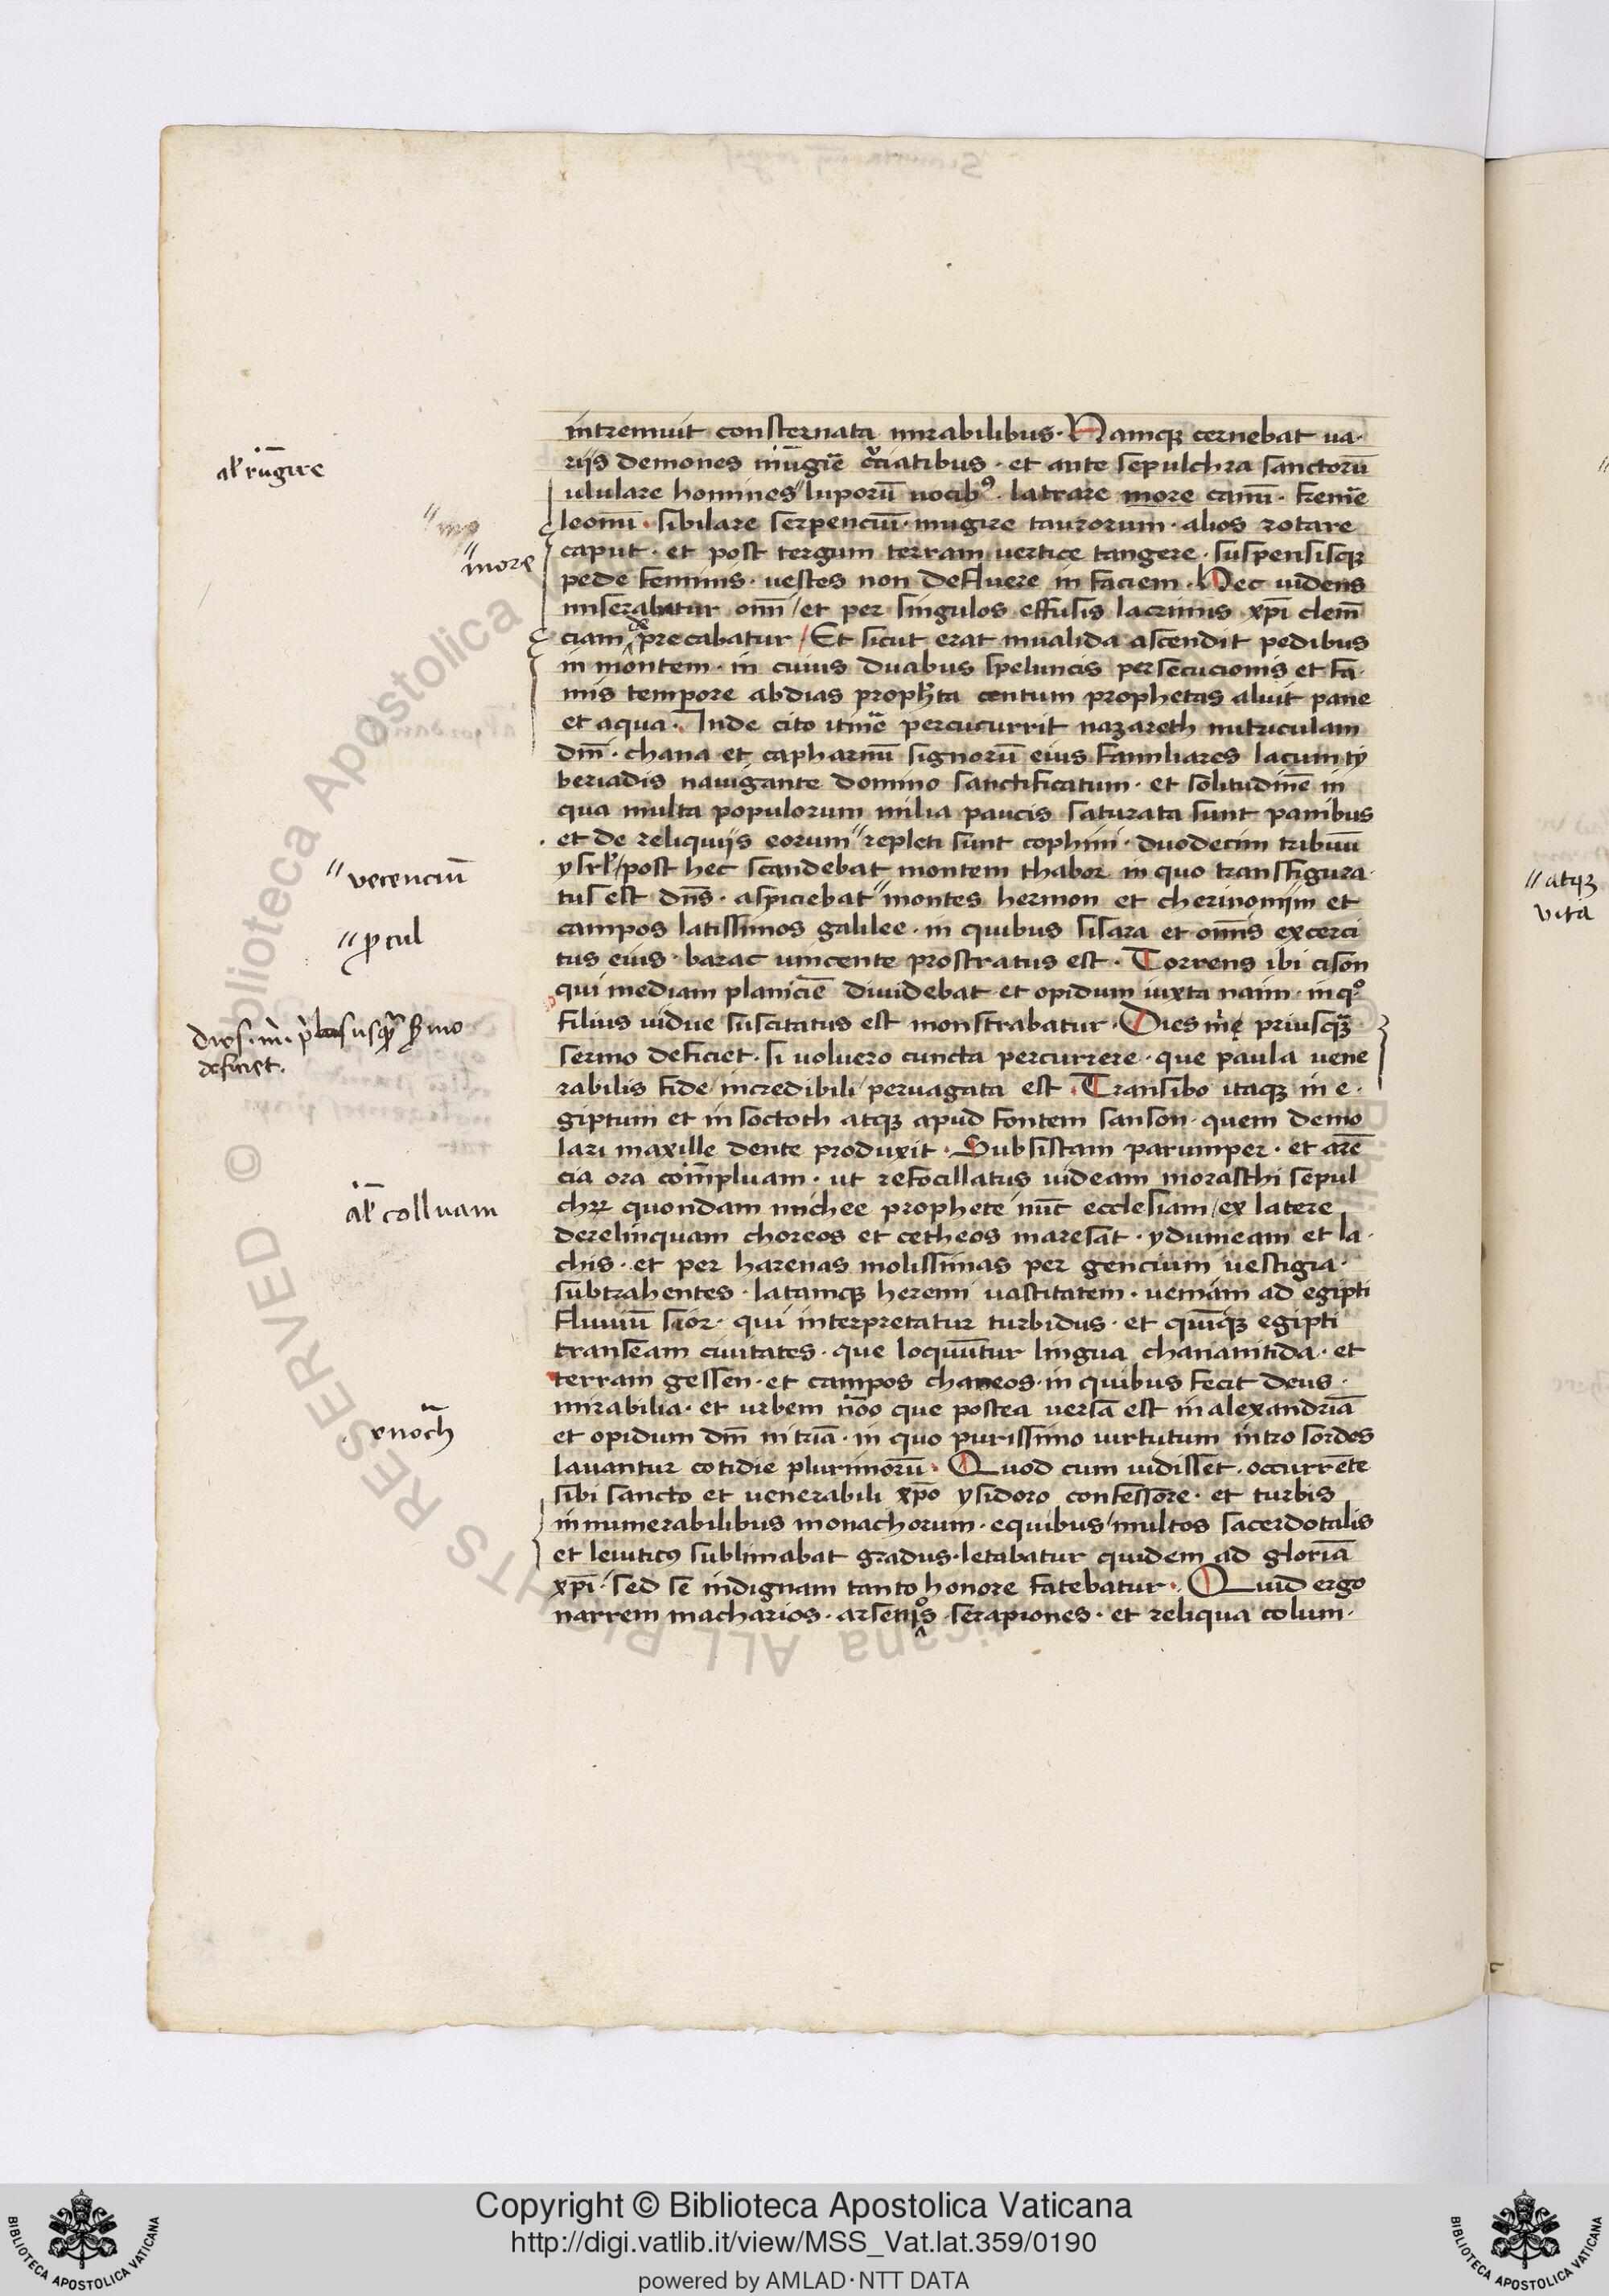 intremuit consternata mirabilibus · Namqꝫ cernebat ua·
riis demones mūgiē c̃ciatibus · et ante sepulchra sanctorū
al̄ rūgire
ululare homines" luporū uocibꝰ · latrare more canū · fremē̄
leonū · sibilare serpenciū · mugire taurorum · alios rotare
"more
caput · et post tergum terram uertice tangere · suspensisqꝫ
pede feminis · uestes non defluere in faciem · Hec uidens
miserabatur om̄ / et per singulos effusis lacrimis xp̄i clem̄
ciam de precabatur / Et sicut erat inualida ascendit pedibus
in montem · in cuius duabus speluncis persecucionis et fa·
mis tempore abdias proph̄ta centum prophetas aluit pane
et aqua · Inde cito itinē percucurrit nazareth nutriculam
dn̄i · chana et capharnū signorū eius familiares lacum ty
beriadis nauigante domino sanctificatum · et solitudinē in
qua multa populorum milia paucis saturata sunt panibus
et de reliquiis eorum" repleti sunt cophini · duodecim tribuū
"vecenciū
ysrl̄ / post hec scandebat montem thabor in quo transfigura·
tus est dn̄s · aspiciebat" montes hermon et cherinomiim et
"ꝓcul
campos latissimos galilee · in quibus sisara et om̄is exerci
tus eius · barac uincente prostratus est · Torrens ibi cison
qui mediam planiciē diuidebat et opidum iuxta naim · in qͦ
filius uidue suscitatus est monstrabatur · Dies m̄e priusqꝫ
defficiet.
sermo deficiet · si voluero cuncta percurrere · que paula uene
rabilis fide / incredibili / peruagata est · Transibo itaqꝫ in e·
giptum et in soctoth atqꝫ apud fontem sanson · quem demo
lari maxille dente produxit · Subsistam parumper · et arē
cia ora com̄pluam · ut refocillatus uideam morasthi sepul
al̄ colluam
chrꝝ quondam michee prophete nūc ecclesiam / ex latere
derelinquam choreos et cetheos maresāt · ydumeam et la·
chis · et per harenas molissimas per gencium uestigia ·
subtrahentes · latamqꝫ heremi uastitatem · ueniam ad egipti
fluuiū sior · qui interpretatur turbidus · et quīqꝫ egipti
transeam ciuitates · que loquūtur lingua chananitida · et
terram gessen · et campos chaneos · in quibus fecit deus ·
mirabilia · et urbem nōo que postea uersa est in alexandriā
enoch
et opidum dn̄i nitriā · in quo purissimo uirtutum intro sordes
lauantur cotidie plurimorū · Quod cum uidisset · occurrēte
sibi sancto et uenerabili xp̄o ysidoro confessore · et turbis
innumerabilibus monachorum · equibus / multos sacerdotalis
et leuiticꝰ sublimabat gradus · letabatur quidem ad gloriā
xp̄i · sed se indignam tanto honore fatebatur · Quid ergo
narrem macharios · arseniͦs · serapiones · et reliqua colum·
"atqꝫ
vita
Copyright © Biblioteca Apostolica Vaticana
http://digi.vatlib.it/view/MSS_Vat.lat.359/0190
powered by AMLAD·NTT DATA
BIBLIOTECA APOSTOLICA VATICANA
BIBLIOTECA APOSTOLICA VATICANA